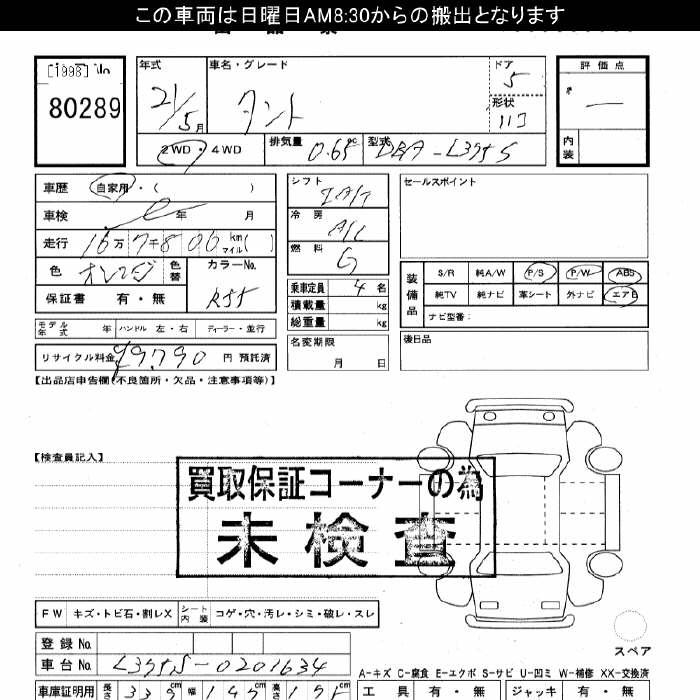 この車両は日曜日AM8:30からの搬出となります
[1998] No
80289
年式 21/5月
車名・グレード タント
ドア 5
形状 ハコ
評価点 —
内装
2WD・4WD
排気量 0.65 cc
型式 DBA-L375S
車歴 自家用・( )
車検 年 月
走行 16万7千806 km マイル( )
色 オレンジ 色替
カラーNo. R55
保証書 有・無
シフト IAT
冷房 A/C
燃料 G
乗車定員 4名
積載量 kg
総重量 kg
名変期限
月 日
セールスポイント
装備品
S/R 純A/W P/S P/W ABS
純TV 純ナビ 革シート 外ナビ エアB
ナビ型番:
後日品
モデル年式 年 ハンドル 左・右 ディーラー・並行
リサイクル料金 ¥9,790 円 預託済
【出品店申告欄(不良箇所・欠品・注意事項等)】
【検査員記入】
買取保証コーナーの為
未検査
FW キズ・トビ石・割レX シート内装 コゲ・穴・汚レ・シミ・破レ・スレ
スペア
登録No.
車台No. L375S-0201634
A-キズ C-腐食 E-エクボ S-サビ U-凹ミ W-補修 XX-交換済
車庫証明用 長さ 339cm 幅 147cm 高さ 175cm
工具 有・無 ジャッキ 有・無